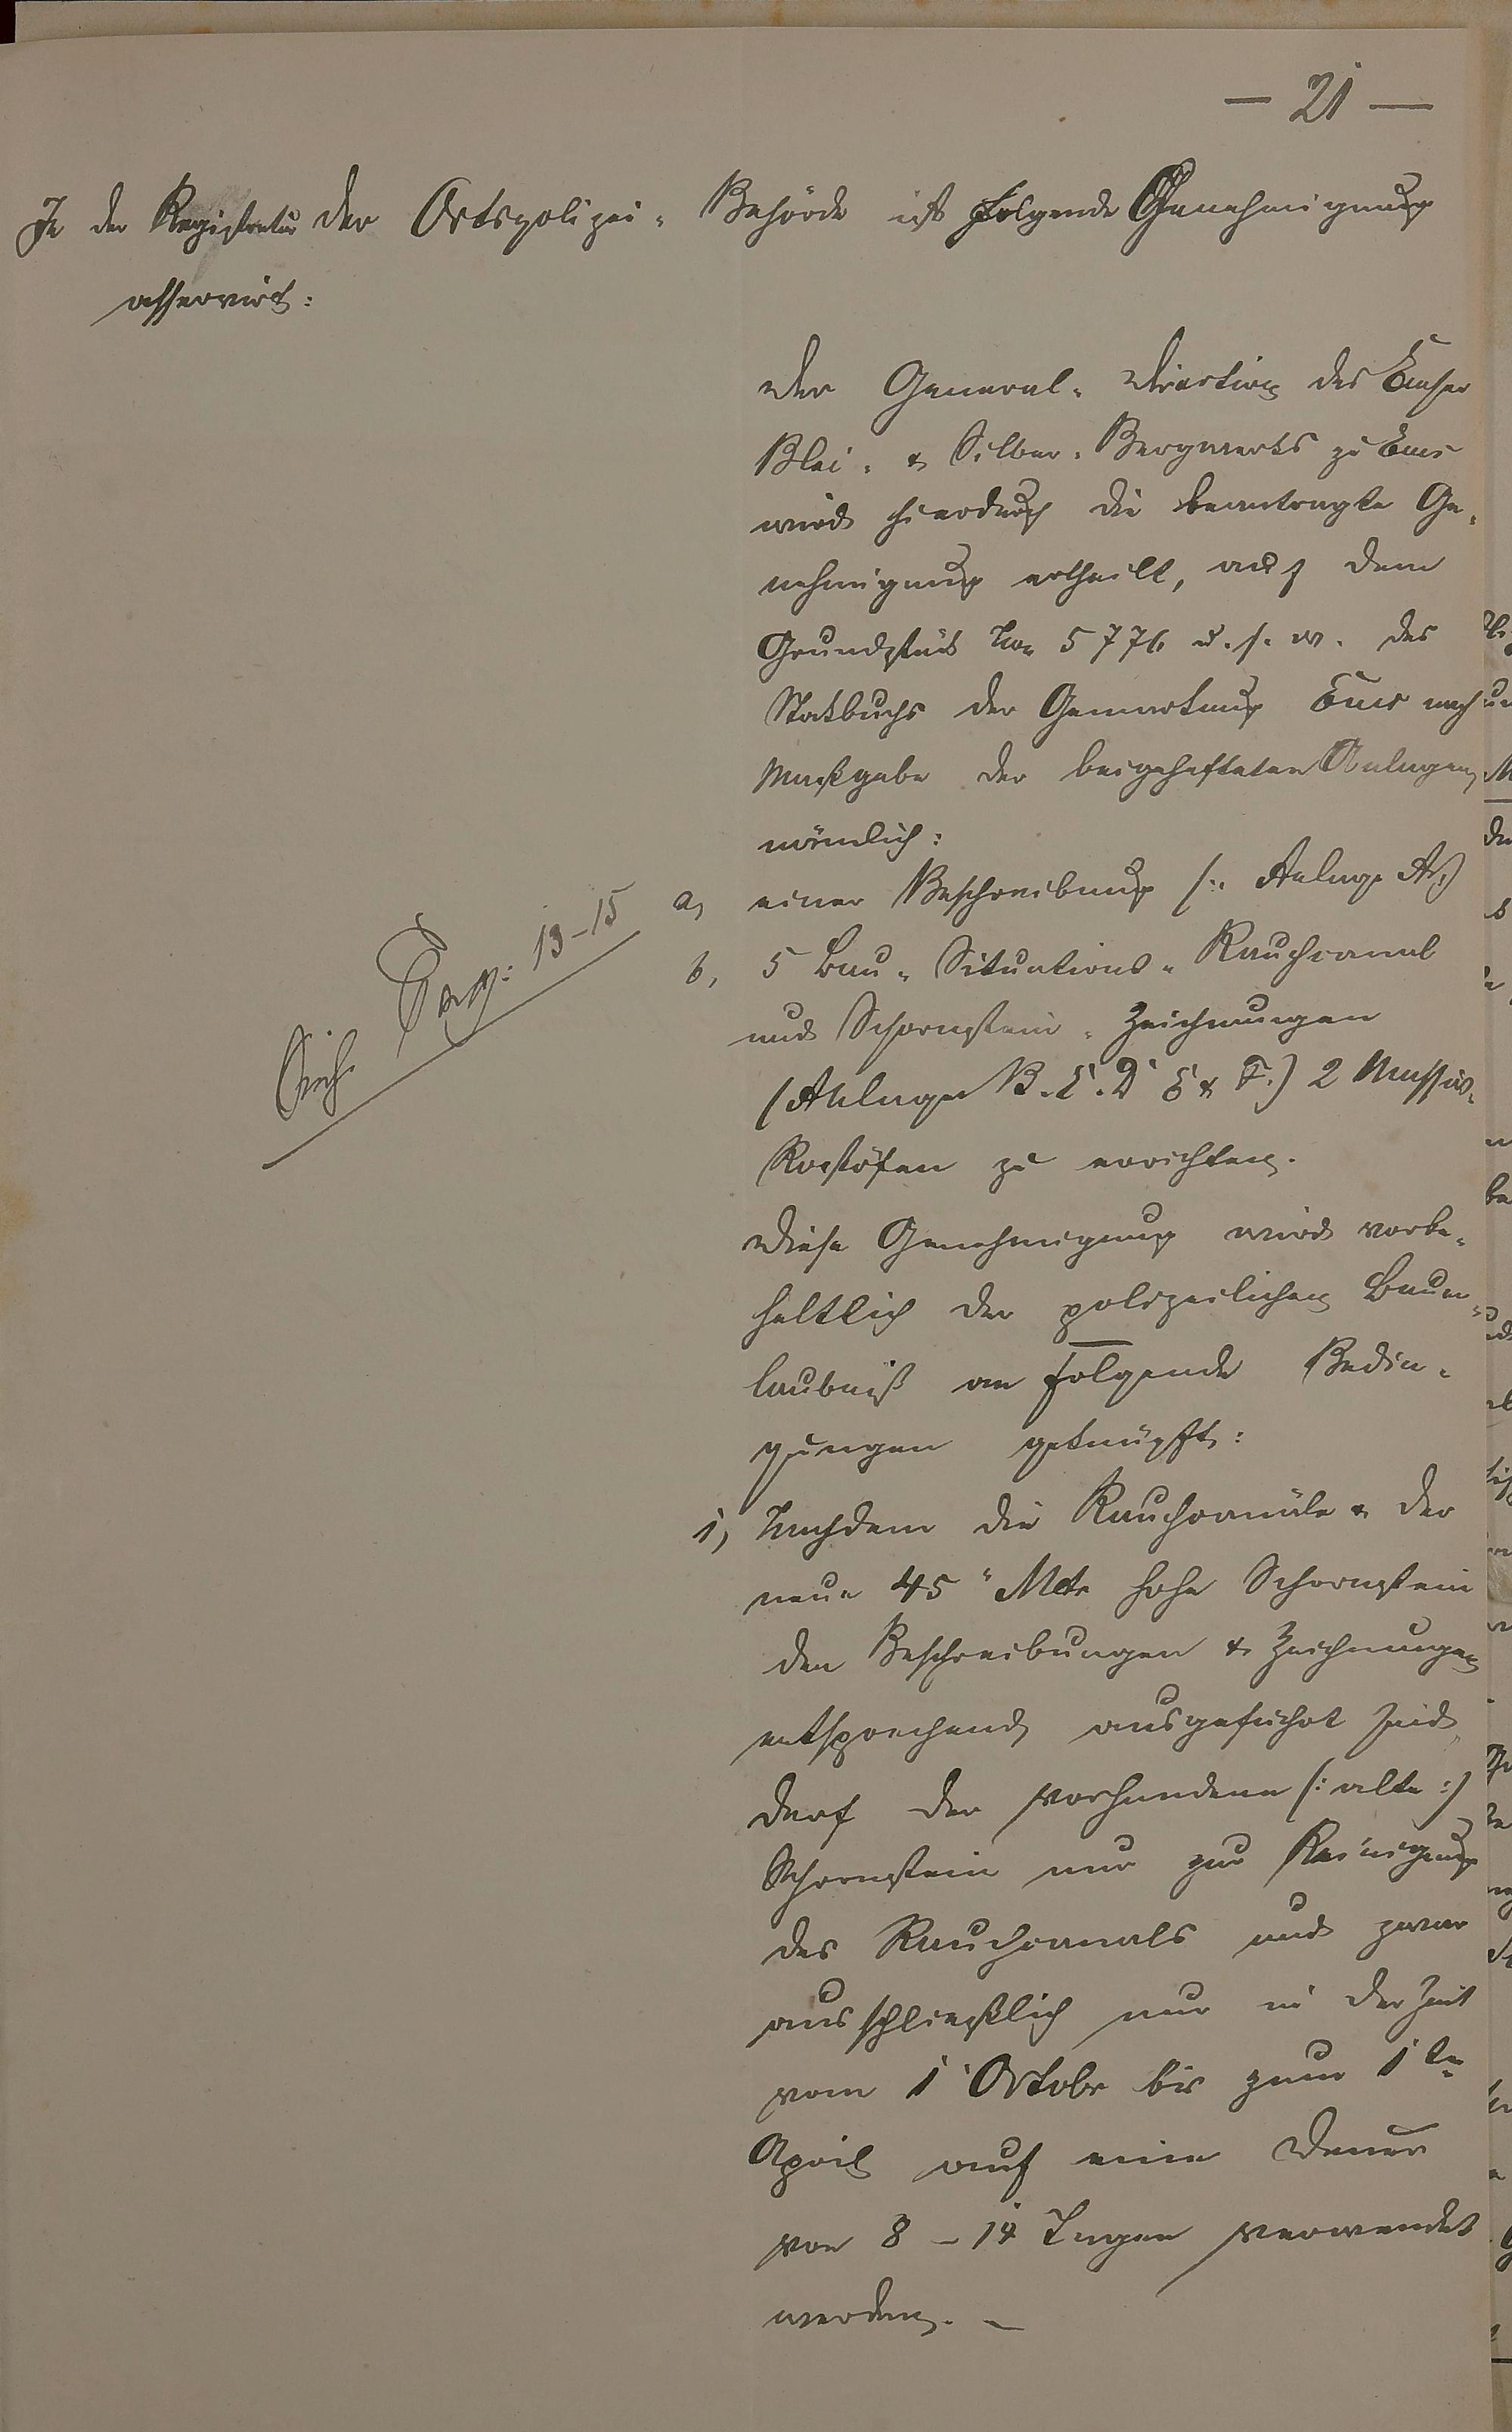 — 21 —
In der Registratur der Ortspolizei- Behörde ist folgende Genehmigung
asservirt:
Der General-Direction des Emser
Blei- & Silber-Bergwerks zu Ems
wird hierdurch die beantragte Ge-
nehmigung ertheilt, auf dem
Grundstück No 5776 u. s. w. des
Stockbuchs der Gemarkung Ems nach
Maßgabe der beigehefteten Anlagen,
nämlich:
a, einer Beschreibung (: Anlage A :)
b, 5 Bau- Situations- Rauchcanal
und Schornstein- Zeichnungen
(Anlagen B. C. D. E & F.) 2 Massiv-
Röstöfen zu errichten.
Sieh. Pag: 13-15
Diese Genehmigung wird vorbe-
haltlich der polizeilichen Bauer-
laubniß an folgende Bedin-
gungen geknüpft:
1, Nachdem die Rauchcanäle & der
neue 45 Mtr hohe Schornstein
den Beschreibungen & Zeichnungen
entsprechend ausgeführt sind,
darf der vorhandene (: alte :)
Schornstein nur zur Reinigung
des Rauchcanals und zwar
ausschließlich nur in der Zeit
vom 1 October bis zum 1ten
April auf eine Dauer
von 8 – 14 Tagen verwendet
werden. –